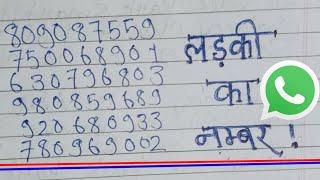 809087559
750068901
630796803
980859689
920680933
780969002
लड़की
का
नम्बर !